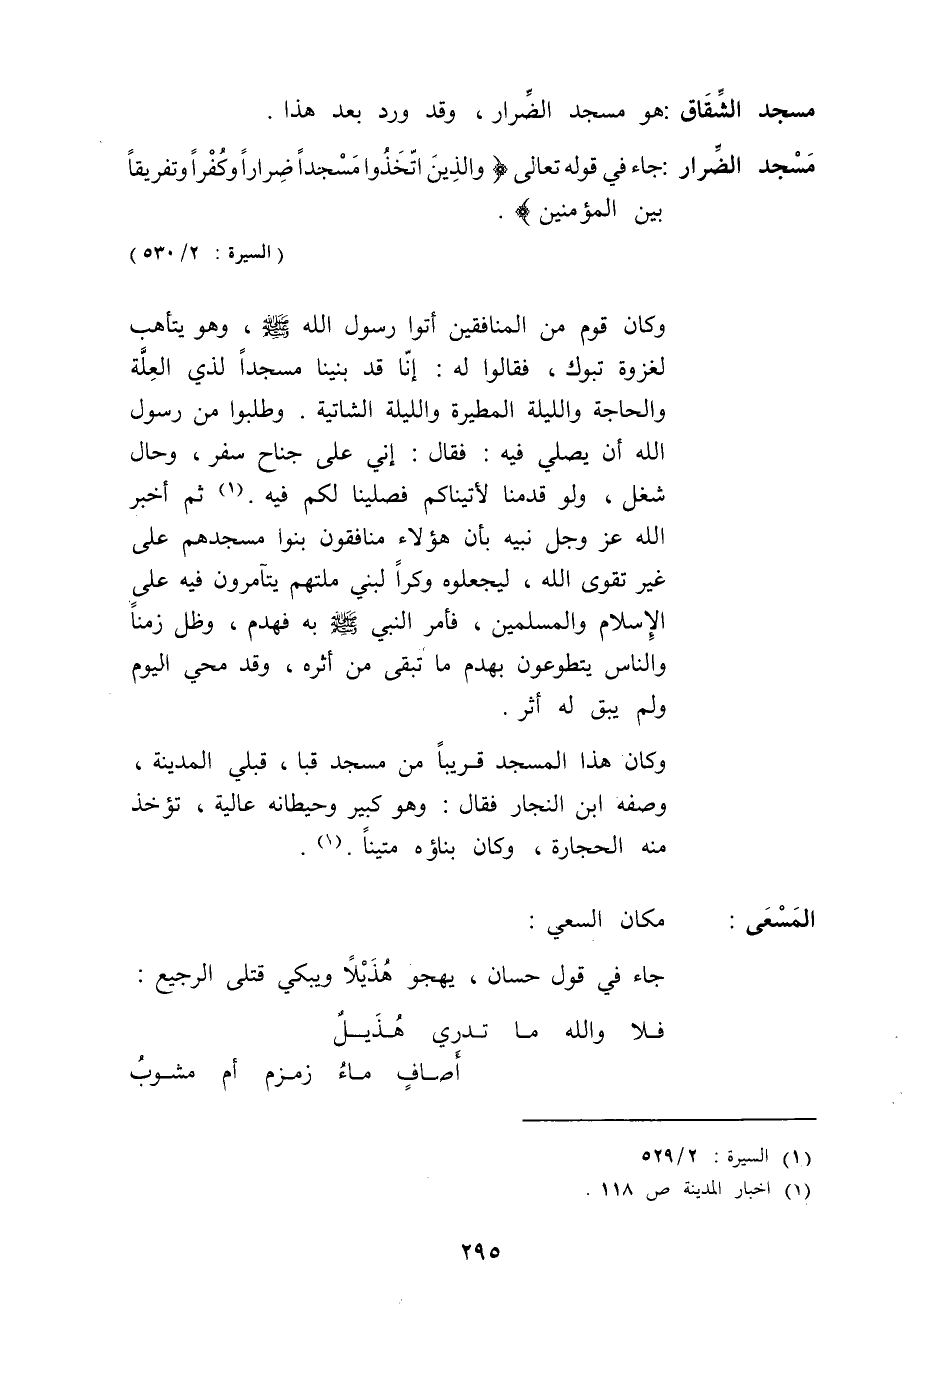 مسجد الشِّقَاق : هو مسجد الضِّرار ، وقد ورد بعد هذا .
مَسْجد الضِّرار : جاء في قوله تعالى ﴿ والذِينَ اتَّخَذُوا مَسْجداً ضِراراً وكُفْراً وتفريقاً
بين المؤمنين ﴾ .
( السيرة : ٢/ ٥٣٠ )
وكان قوم من المنافقين أتوا رسول الله ﷺ ، وهو يتأهب
لغزوة تبوك ، فقالوا له : إنّا قد بنينا مسجداً لذي العِلَّة
والحاجة والليلة المطيرة والليلة الشاتية . وطلبوا من رسول
الله أن يصلي فيه : فقال : إني على جناح سفر ، وحال
شغل ، ولو قدمنا لأتيناكم فصلينا لكم فيه .(١) ثم أخبر
الله عز وجل نبيه بأن هؤلاء منافقون بنوا مسجدهم على
غير تقوى الله ، ليجعلوه وكراً لبني ملتهم يتآمرون فيه على
الإسلام والمسلمين ، فأمر النبي ﷺ به فهدم ، وظل زمناً
والناس يتطوعون بهدم ما تبقى من أثره ، وقد محي اليوم
ولم يبق له أثر .
وكان هذا المسجد قريباً من مسجد قبا ، قبلي المدينة ،
وصفه ابن النجار فقال : وهو كبير وحيطانه عالية ، تؤخذ
منه الحجارة ، وكان بناؤه متيناً .(١) .
المَسْعَى : مكان السعي :
جاء في قول حسان ، يهجو هُذَيْلًا ويبكي قتلى الرجيع :
فلا والله ما تدري هُذَيلٌ
أَصافٍ ماءُ زمزم أم مشوبُ
(١) السيرة : ٢/ ٥٢٩
(١) اخبار المدينة ص ١١٨ .
٢٩٥